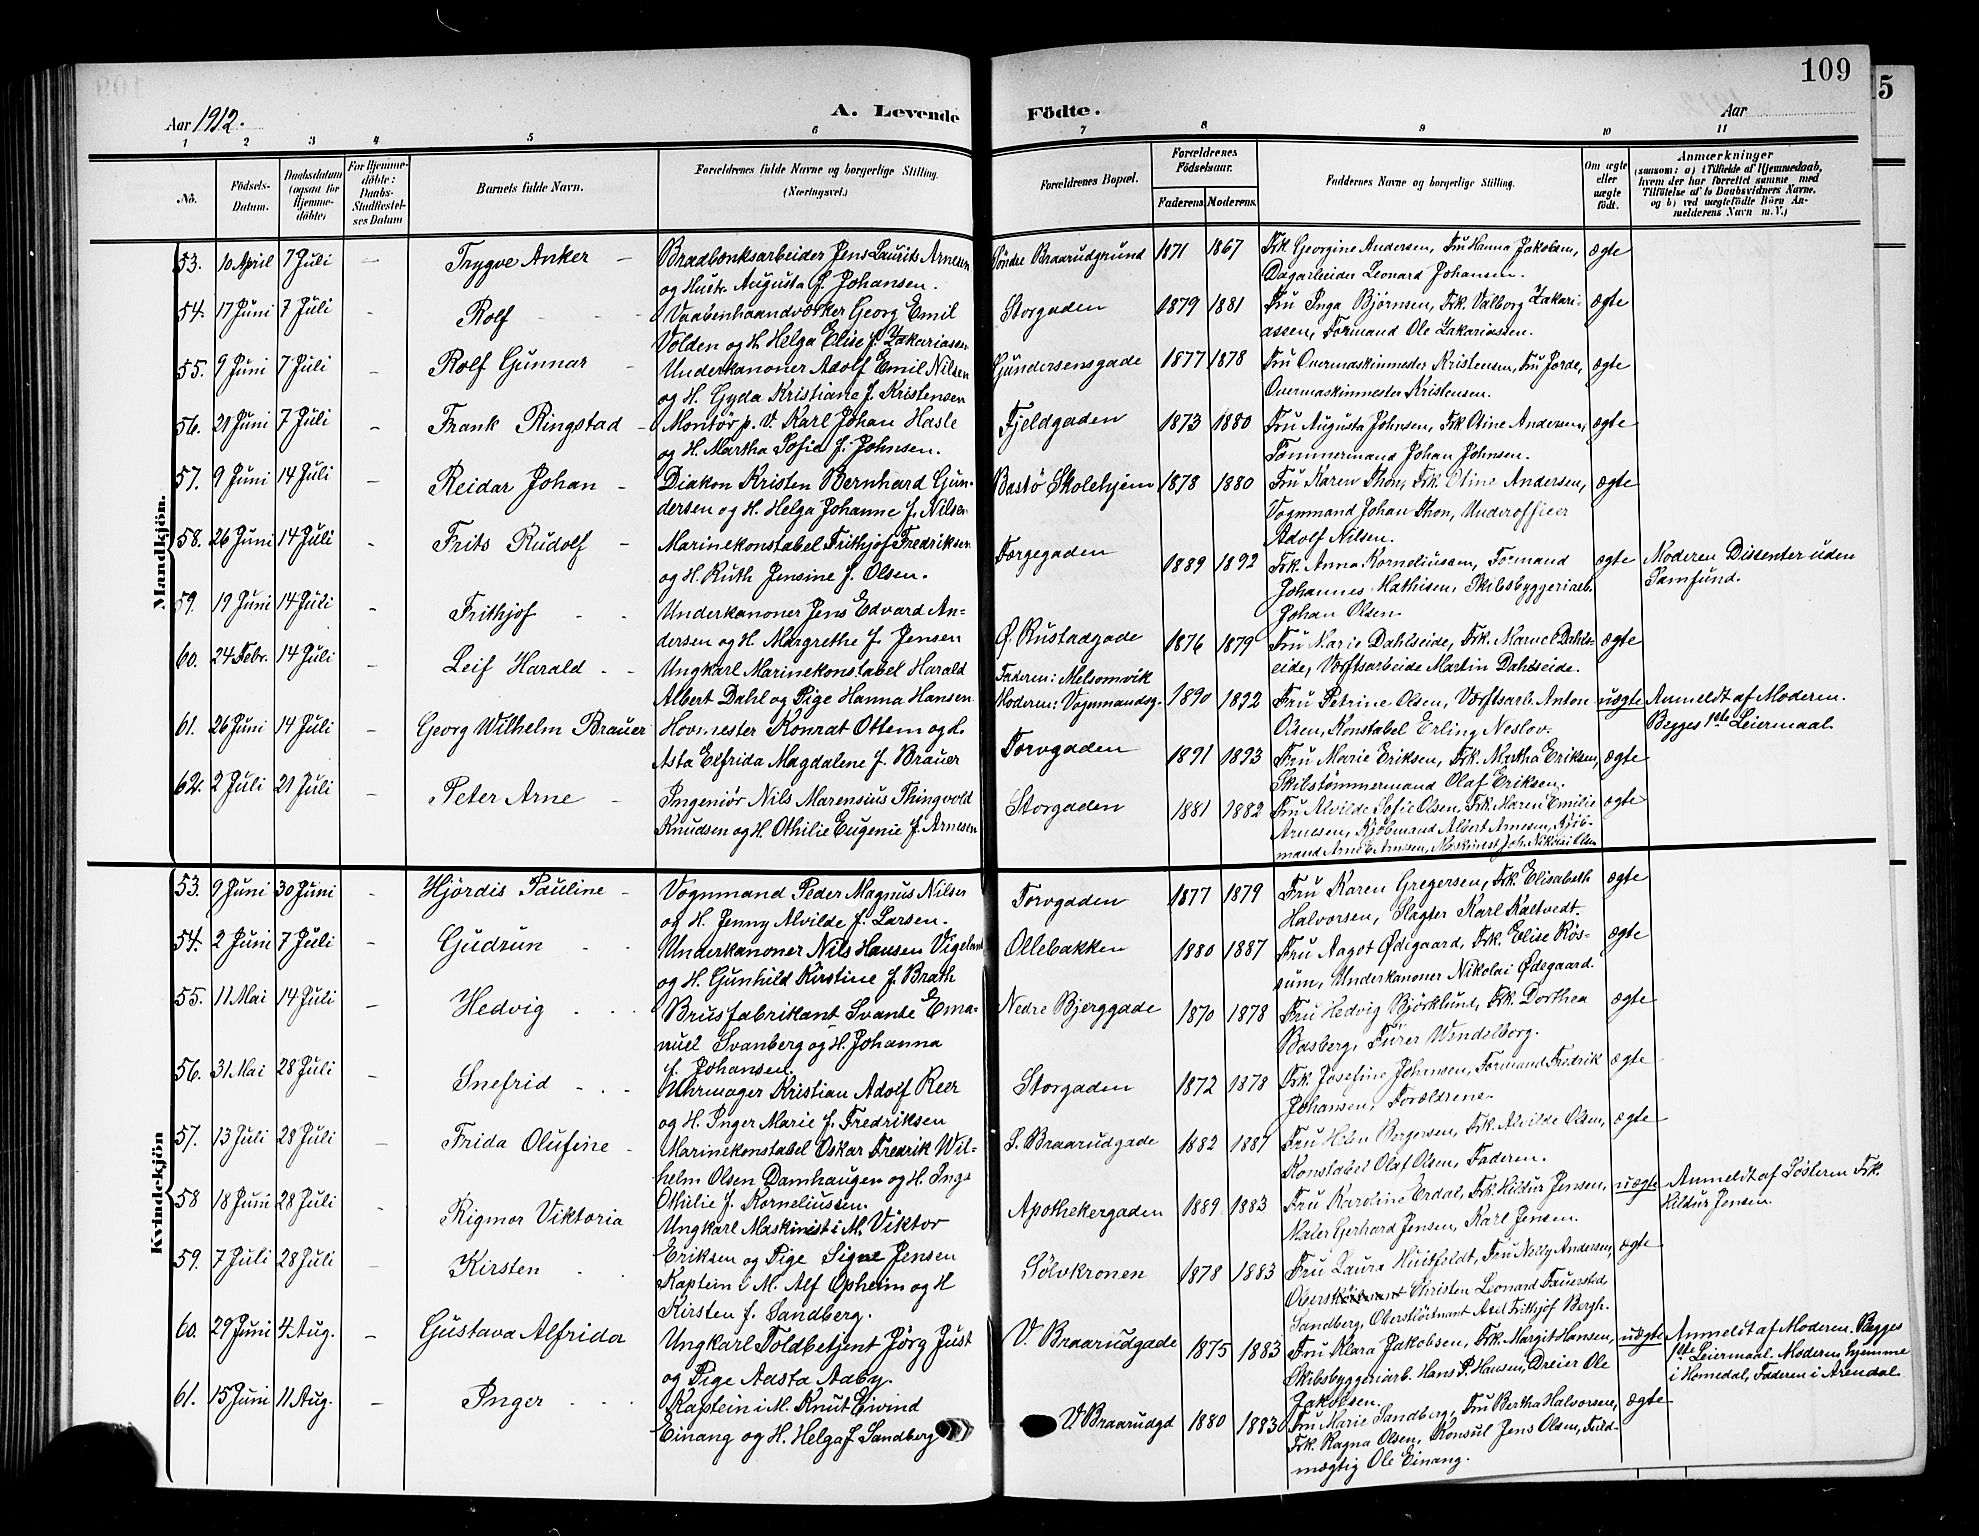 109
5
Aar 1912.
A. Levende Födte.
Aar
1 2 3 4 5 6 7 8 9 10 11
No.
Födsels-Datum.
Daabsdatum (ogsaa for Hjemmedöbte)
For Hjemmedöbte: Daabs-Stadfæstelses Datum
Barnets fulde Navn.
Forældrenes fulde Navne og borgerlige Stilling. (Næringsvei.)
Forældrenes Bopæl.
Forældrenes Födselsaar.
Faderens. Moderens.
Faddernes Navne og borgerlige Stilling.
Om ægte eller uægte födt.
Anmærkninger
(saasom: a) i Tilfælde af Hjemmedaab, hvem der har forrettet samme med Tilföielse af to Daabsvidners Navne, og b) ved uægtefödte Börn Anmelderens Navn m. V.)
Mandkjön.
53. 10 April 7 Juli — Trygve Anker — Brædbænksarbeider Jens Laurits Arnesen og Hustr. Augusta f. Johansen. Söndre Braarudgrund 1871 1867 Frk. Georgine Andersen, Fru Hanna Jakobsen, Dagarbeider Leonard Johansen. ægte
54. 17 Juni 7 Juli - Rolf - - - Vaabenhaandværker Georg Emil Volden og H. Helga Elise f. Zakariassen Storgaden 1879 1881 Fru Inga Bjørnsen, Frk. Valborg Zakariassen, Formand Ole Zakariassen. ægte
55. 9 Juni 7 Juli - Rolf Gunnar - Underkanoner Adolf Emil Nilsen og H. Gyda Kristiane f. Kristensen Gundersensgade 1877 1878 Fru Overmaskinmester Kristensen, Fru Jorde, Overmaskinmester Kristensen. ægte
56. 21 Juni 7 Juli - Frank Ringstad - Montör p. V. Karl Johan Hasle og H. Martha Sofie f. Johnsen. Fjeldgaden 1873 1880 Fru Augusta Johnsen, Frk Otine Andersen, Tömmermand Johan Johnsen. ægte
57. 9 Juni 14 Juli - Reidar Johan - Diakon Kristen Bernhard Gundersen og H. Helga Johanne f. Nilsen Bastö Skolehjem 1878 1880 Fru Karen Thon, Frk. Otine Andersen, Vognmand Johan Thon, Underofficer Adolf Nilsen. ægte
58. 26 Juni 14 Juli - Frits Rudolf - Marinekonstabel Frithjof Fredriksen og H. Ruth Jensine f. Olsen. Færgegaden 1889 1892 Frk. Anna Korneliussen, Formand Johannes Mathisen, Skibsbyggeriarb. Johan Olsen. ægte Moderen Dissenter uden Samfund.
59. 19 Juni 14 Juli - Frithjof - - Underkanoner Jens Edvard Andersen og H. Margrethe f. Jensen Ø. Rustadgade 1876 1879 Fru Marie Dahlseide, Frk. Dahlseide, Værftsarbeide Martin Dahlseide. ægte
60. 24 Febr. 14 Juli - Leif Harald - - Ungkarl Marinekonstabel Harald Albert Dahl og Pige Hanna Hansen Faderen: Melsomvik Moderen: Vognmandsg. 1890 1892 Fru Petrine Olsen, Værftsarb. Anton Olsen, Konstabel Erling Neslov. uægte Anmeldt af Moderen. Begges 1ste Leiermaal.
61. 26 Juni 14 Juli - Georg Wilhelm Brauer Hovmester Konrat Ottem og H. Asta Elfrida Magdalene f. Brauer Torvgaden 1891 1893 Fru Marie Eriksen, Frk. Martha Eriksen, Skibstømmermand Olaf Eriksen. ægte
62. 2 Juli 21 Juli - Peter Arne - Ingeniör Nils Marensius Thingvold Knudsen og H Othilie Eugenie f. Arnesen Storgaden 1881 1882 Fru Alvilde Sofie Olsen, Frk. Maren Emilie Arnesen, Kjöbmand Albert Arnesen, Kjöbmand Arne E. Arnesen, Maskinist Joh. Nikolai Olsen ægte
Kvindekjön
53. 9 Juni 30 Juni - Hjördis Pauline - Vognmand Peder Magnus Nilsen og H. Jenny Alvilde f. Larsen. Torvgaden 1877 1879 Fru Karen Gregersen, Frk Elisabeth Halvorsen, Slagter Karl Kaltvedt. ægte
54. 2 Juni 7 Juli - Gudrun - - Underkanoner Nils Hansen Vigeland og H. Gunhild Kirstine f Brath Ollebakken 1880 1887 Fru Aagot Ødegaard, Frk. Elise Røssum, Underkanoner Nikolai Ødegaard. ægte
55. 11 Mai 14 Juli - Hedvig - - - Brusfabrikant Svante Emanuel Svanberg og H. Johanna f. Johansen. Nedre Bjerggade 1870 1878 Fru Hedvig Bjørklund, Frk. Dorthea Basberg, Fürer Wendelborg. ægte
56. 31 Mai 28 Juli - Snefrid - - - Uhrmager Kristian Adolf Reer og H. Inger Marie f. Fredriksen Storgaden 1872 1878 Frk. Josefine Johansen, Formand Fredrik Johansen, Forældrene. ægte
57. 13 Juli 28 Juli - Frida Olufine - Marinekonstabel Oskar Fredrik Wilhelm Olsen Damhaugen og H. Inga Othilie f. Korneliussen. S. Braarudgade 1882 1881 Fru Helen Bergersen, Frk. Alvilde Olsen, Konstabel Olaf Olsen, Faderen. ægte
58 18 Juni 28 Juli - Rigmor Viktoria Ungkarl Maskinist i M. Viktor Eriksen og Pige Signe Jensen Apothekergaden 1889 1883 Fru Karoline Erdal, Frk. Hildur Jensen, Maler Gerhard Jensen, Karl Jensen. uægte Anmeldt af Søsteren Frk. Hildur Jensen.
59. 7 Juli 28 Juli - Kirsten - - Kaptein i M. Alf Opheim og H Kirsten f. Sandberg. Sølvkronen 1878 1883 Fru Laura Huitfeldt, Fru Nelly Andersen, Christen Leonard Fauersted Sandberg, Oberstlöitnant Axel Frithjof Bergh. ægte
60. 29 Juni 4 Aug. - Gustava Alfrida Ungkarl Toldbetjent Jörg Just og Pige Aasta Aaby. V. Braarudgade 1875 1883 Fru Klara Jakobsen, Frk. Margit Hansen, Skibsbyggeriarb. Hans P. Hansen, Dreier Ole Jakobsen. uægte Anmeldt af Moderen. Begges 1ste Leiermaal. Moderen hjemme i Homedal, Faderen i Arendal.
61. 15 Juni 11 Aug. - Inger - - - Kaptein i M. Knut Eivind Einang og H. Helga f. Sandberg V Braarudgd 1880 1883 Fru Marie Sandberg, Fru Bertha Halvorsen, Frk. Ragna Olsen, Konsul Jens Olsen, Fuldmægtig Ole Einang. ægte